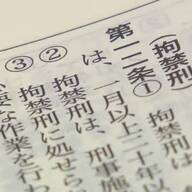 （拘禁刑
第一二条①
は、一月以上二十年以
② 拘禁刑は、刑事施
③ 拘禁刑に処せら
要な作業を行わ